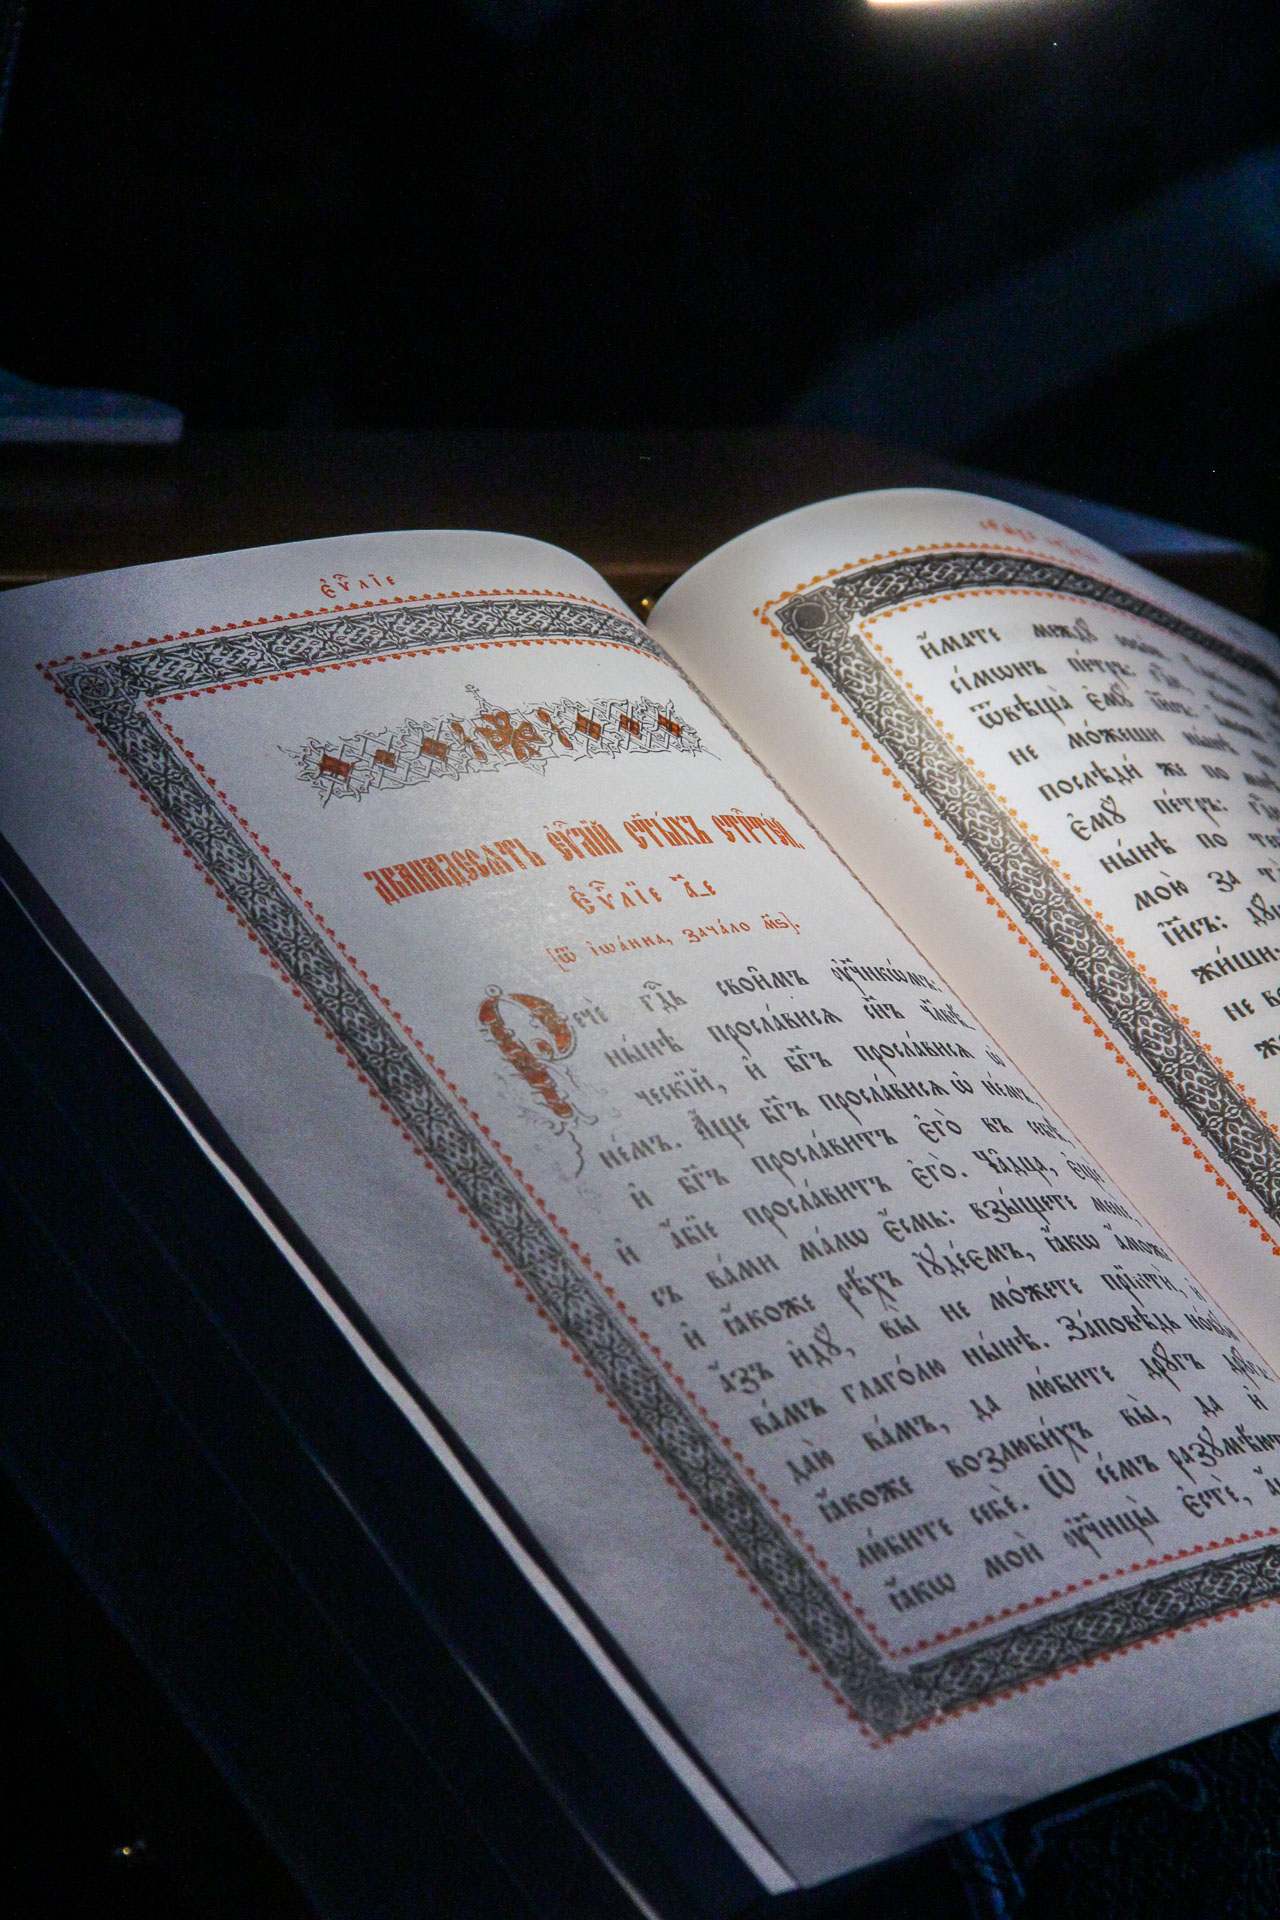 є҆ѵⷢ҇лїе
двана́десѧть є҆ѵⷢ҇лїй ст҃ы́хъ стрⷭ҇те́й.
є҆ѵⷢ҇лїе а҃_е
[ѿ і҆ѡа́нна, зача́ло м҃ѕ].
Речѐ гдⷭ҇ь свои̑мъ ᲂу҆чн҃икѡ́мъ:
ны́нѣ просла́висѧ сн҃ъ чл҃вѣ́-
ческїй, и҆ бг҃ъ просла́висѧ ѡ҆
не́мъ. А҆́ще бг҃ъ просла́висѧ ѡ҆ не́мъ,
и҆ бг҃ъ просла́витъ є҆го̀ въ себѣ̀,
и҆ а҆́бїе просла́витъ є҆го̀. Ча̑дца, є҆щѐ
съ ва́ми ма́лѡ є҆́смь: взы́щете менѐ,
и҆ ꙗ҆́коже рѣ́хъ і҆ꙋде́ємъ, ꙗ҆́кѡ а҆́може
а҆́зъ и҆дꙋ̀, вы̀ не мо́жете прїитѝ, и҆
ва́мъ глаго́лю ны́нѣ. За́повѣдь но́вꙋю
даю̀ ва́мъ, да лю́бите дрꙋ́гъ дрꙋ́га,
ꙗ҆́коже возлюби́хъ вы̀, да и҆
лю́бите себѐ. Ѡ҆ се́мъ разꙋмѣ́ютъ
ꙗ҆́кѡ моѝ ᲂу҆чн҃цы̀ є҆стѐ,
и҆́мате междꙋ̀
сі́мѡнъ пе́тръ: гдⷭ҇и,
ѿвѣща̀ є҆мꙋ̀ і҆и҃съ:
не мо́жеши ны́нѣ
послѣди́ же по
є҆мꙋ̀ пе́тръ: гдⷭ҇и
ны́нѣ по
мою̀ за тѧ̀
і҆и҃съ:
жи́ши
не